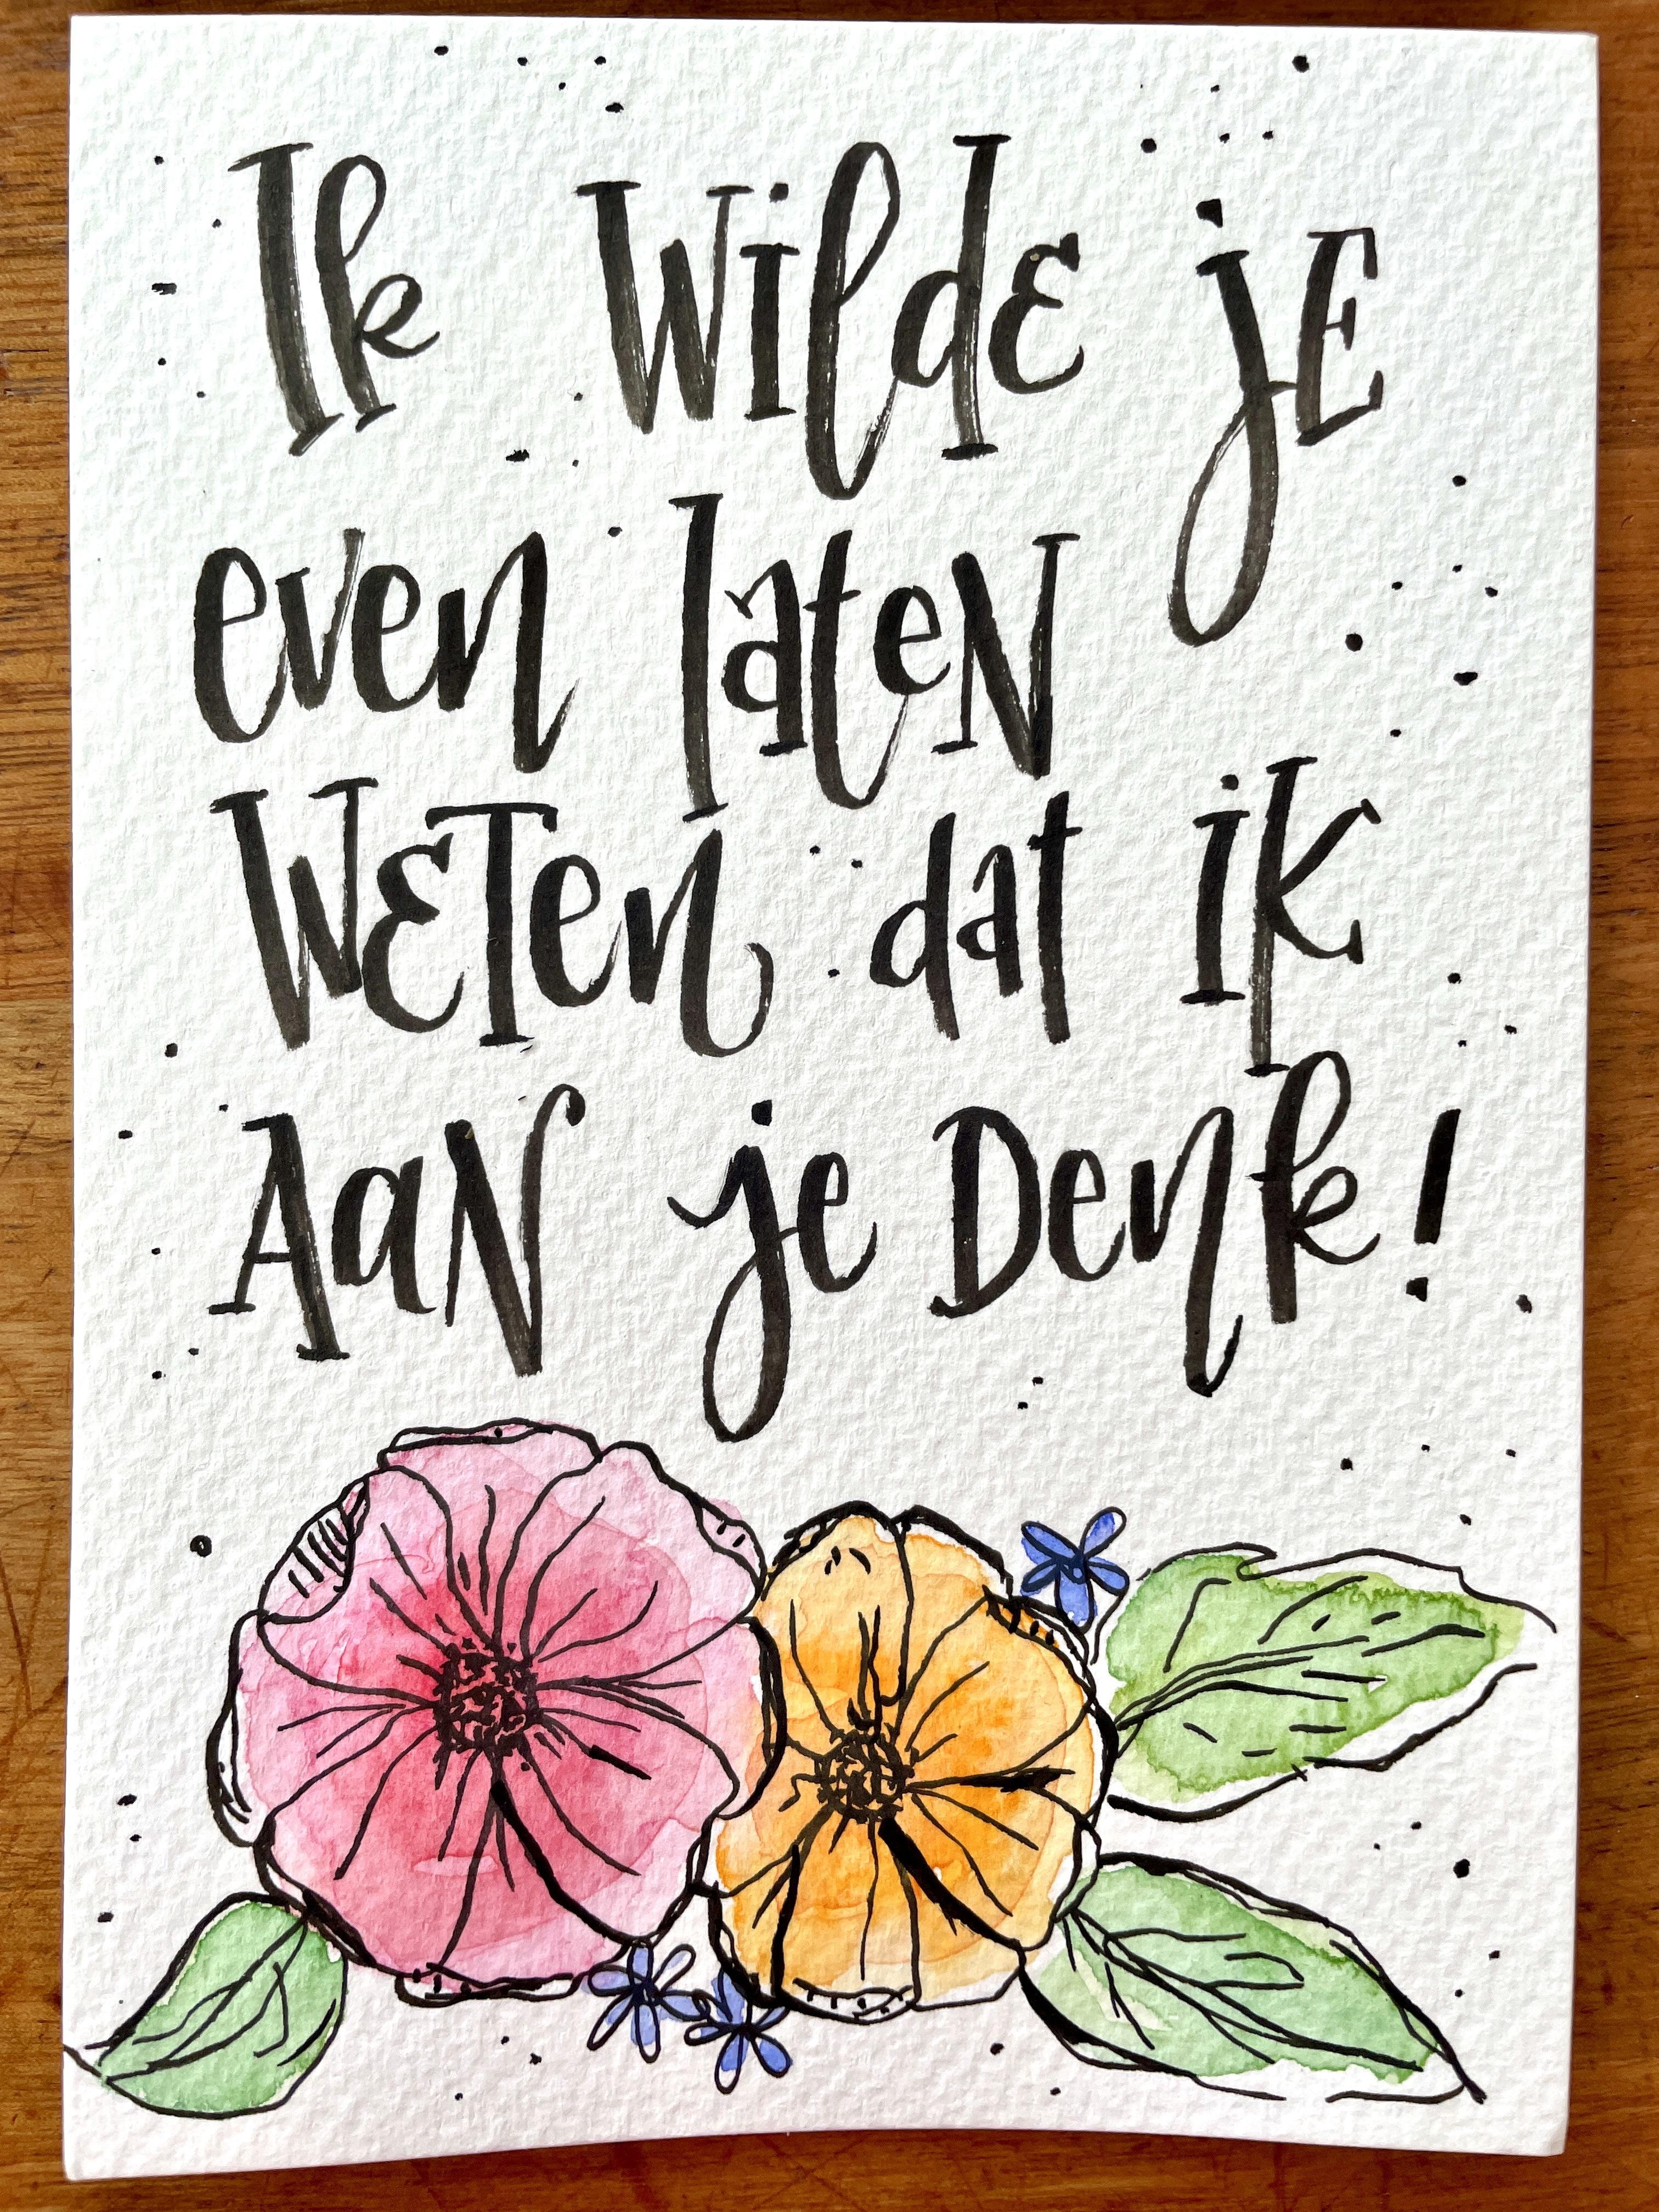 Ik wilde je
even laten
weten dat ik
aan je denk!